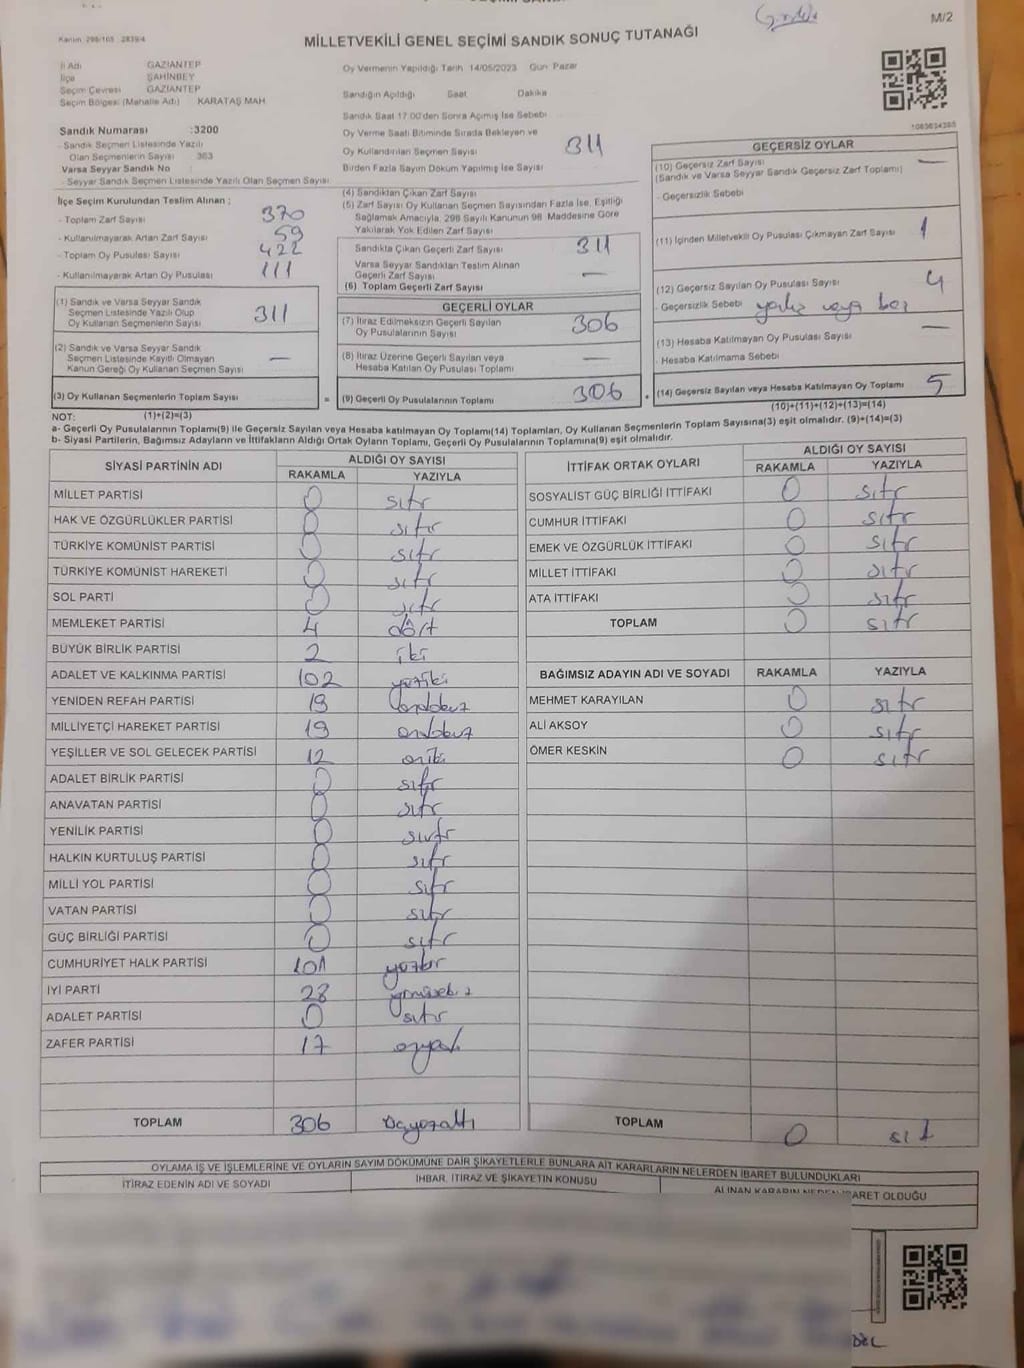 M/2
Kanun: 298/105 2839/4
MİLLETVEKİLİ GENEL SEÇİMİ SANDIK SONUÇ TUTANAĞI
İl Adı GAZİANTEP
İlçe ŞAHİNBEY
Seçim Çevresi GAZİANTEP
Seçim Bölgesi (Mahalle Adı) KARATAŞ MAH.
Sandık Numarası :3200
- Sandık Seçmen Listesinde Yazılı
Olan Seçmenlerin Sayısı 363
Varsa Seyyar Sandık No :
- Seyyar Sandık Seçmen Listesinde Yazılı Olan Seçmen Sayısı
Oy Vermenin Yapıldığı Tarih 14/05/2023 Gün Pazar
Sandığın Açıldığı Saat Dakika
Sandık Saat 17.00'den Sonra Açılmış İse Sebebi
Oy Verme Saati Bitiminde Sırada Bekleyen ve
Oy Kullandırılan Seçmen Sayısı 311
Birden Fazla Sayım Döküm Yapılmış İse Sayısı
İlçe Seçim Kurulundan Teslim Alınan ;
- Toplam Zarf Sayısı 370
- Kullanılmayarak Artan Zarf Sayısı 59
- Toplam Oy Pusulası Sayısı 422
- Kullanılmayarak Artan Oy Pusulası 111
(1) Sandık ve Varsa Seyyar Sandık
Seçmen Listesinde Yazılı Olup
Oy Kullanan Seçmenlerin Sayısı 311
(2) Sandık ve Varsa Seyyar Sandık
Seçmen Listesinde Kayıtlı Olmayan
Kanun Gereği Oy Kullanan Seçmen Sayısı —
(3) Oy Kullanan Seçmenlerin Toplam Sayısı =
(1)+(2)=(3)
(4) Sandıktan Çıkan Zarf Sayısı
(5) Zarf Sayısı Oy Kullanan Seçmen Sayısından Fazla İse, Eşitliği
Sağlamak Amacıyla, 298 Sayılı Kanunun 98. Maddesine Göre
Yakılarak Yok Edilen Zarf Sayısı
Sandıkta Çıkan Geçerli Zarf Sayısı 311
Varsa Seyyar Sandıktan Teslim Alınan
Geçerli Zarf Sayısı —
(6) Toplam Geçerli Zarf Sayısı
GEÇERLİ OYLAR
(7) İtiraz Edilmeksizin Geçerli Sayılan
Oy Pusulalarının Sayısı 306
(8) İtiraz Üzerine Geçerli Sayılan veya
Hesaba Katılan Oy Pusulası Toplamı —
(9) Geçerli Oy Pusulalarının Toplamı 306 +
GEÇERSİZ OYLAR
(10) Geçersiz Zarf Sayısı —
(Sandık ve Varsa Seyyar Sandık Geçersiz Zarf Toplamı)
- Geçersizlik Sebebi
(11) İçinden Milletvekili Oy Pusulası Çıkmayan Zarf Sayısı 1
(12) Geçersiz Sayılan Oy Pusulası Sayısı 4
- Geçersizlik Sebebi veya
(13) Hesaba Katılmayan Oy Pusulası Sayısı —
- Hesaba Katılmama Sebebi
(14) Geçersiz Sayılan veya Hesaba Katılmayan Oy Toplamı 5
(10)+(11)+(12)+(13)=(14)
NOT:
a- Geçerli Oy Pusulalarının Toplamı(9) ile Geçersiz Sayılan veya Hesaba katılmayan Oy Toplamı(14) Toplamları, Oy Kullanan Seçmenlerin Toplam Sayısına(3) eşit olmalıdır. (9)+(14)=(3)
b- Siyasi Partilerin, Bağımsız Adayların ve İttifakların Aldığı Ortak Oyların Toplamı, Geçerli Oy Pusulalarının Toplamına(9) eşit olmalıdır.
SİYASİ PARTİNİN ADI ALDIĞI OY SAYISI
RAKAMLA YAZIYLA
MİLLET PARTİSİ 0 sıfır
HAK VE ÖZGÜRLÜKLER PARTİSİ 0 sıfır
TÜRKİYE KOMÜNİST PARTİSİ 0 sıfır
TÜRKİYE KOMÜNİST HAREKETİ 0 sıfır
SOL PARTİ 0 sıfır
MEMLEKET PARTİSİ 4 dört
BÜYÜK BİRLİK PARTİSİ 2 iki
ADALET VE KALKINMA PARTİSİ 102 yüziki
YENİDEN REFAH PARTİSİ 19 ondokuz
MİLLİYETÇİ HAREKET PARTİSİ 19 ondokuz
YEŞİLLER VE SOL GELECEK PARTİSİ 12 oniki
ADALET BİRLİK PARTİSİ 0 sıfır
ANAVATAN PARTİSİ 0 sıfır
YENİLİK PARTİSİ 0 sıfır
HALKIN KURTULUŞ PARTİSİ 0 sıfır
MİLLİ YOL PARTİSİ 0 sıfır
VATAN PARTİSİ 0 sıfır
GÜÇ BİRLİĞİ PARTİSİ 0 sıfır
CUMHURİYET HALK PARTİSİ 101 yüzbir
İYİ PARTİ 28 yirmisekiz
ADALET PARTİSİ 0 sıfır
ZAFER PARTİSİ 17 onyedi
TOPLAM 306 üçyüzaltı
İTTİFAK ORTAK OYLARI ALDIĞI OY SAYISI
RAKAMLA YAZIYLA
SOSYALİST GÜÇ BİRLİĞİ İTTİFAKI 0 sıfır
CUMHUR İTTİFAKI 0 sıfır
EMEK VE ÖZGÜRLÜK İTTİFAKI 0 sıfır
MİLLET İTTİFAKI 0 sıfır
ATA İTTİFAKI 0 sıfır
TOPLAM 0 sıfır
BAĞIMSIZ ADAYIN ADI VE SOYADI RAKAMLA YAZIYLA
MEHMET KARAYILAN 0 sıfır
ALİ AKSOY 0 sıfır
ÖMER KESKİN 0 sıfır
TOPLAM 0 sıfır
OYLAMA İŞ VE İŞLEMLERİNE VE OYLARIN SAYIM DÖKÜMÜNE DAİR ŞİKAYETLERLE BUNLARA AİT KARARLARIN NELERDEN İBARET BULUNDUKLARI
İTİRAZ EDENİN ADI VE SOYADI İHBAR, İTİRAZ VE ŞİKAYETİN KONUSU ALINAN KARARIN NEDEN İBARET OLDUĞU